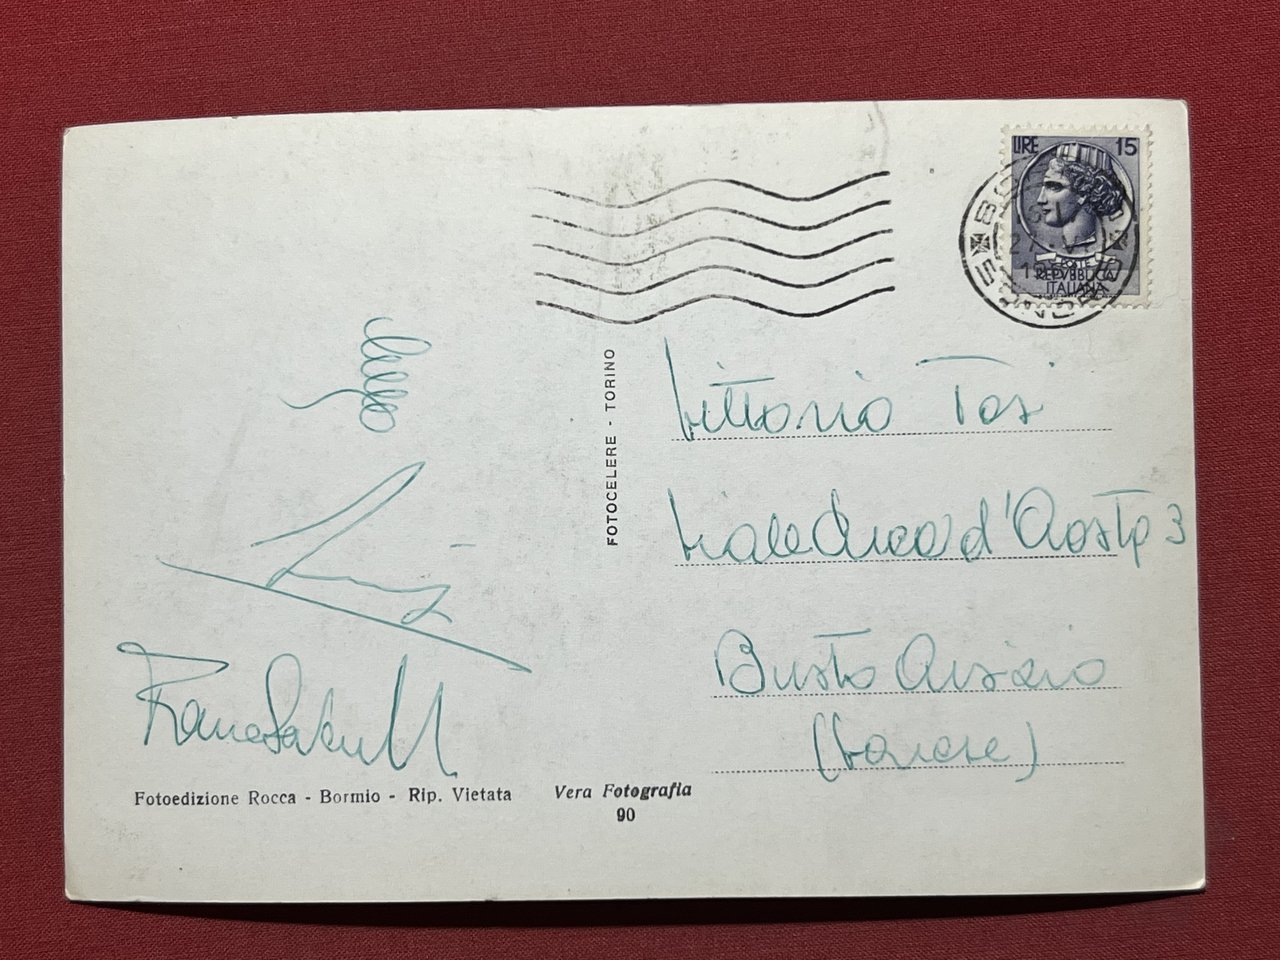 LIRE 15
POSTE
REPVBBLICA
ITALIANA
BORMIO
SONDRIO
27. VI
FOTOCELERE - TORINO
Vittorio Tosi
Viale Duca d'Aosta 3
Busto Arsizio
(Varese)
Fotoedizione Rocca - Bormio - Rip. Vietata
Vera Fotografia
90